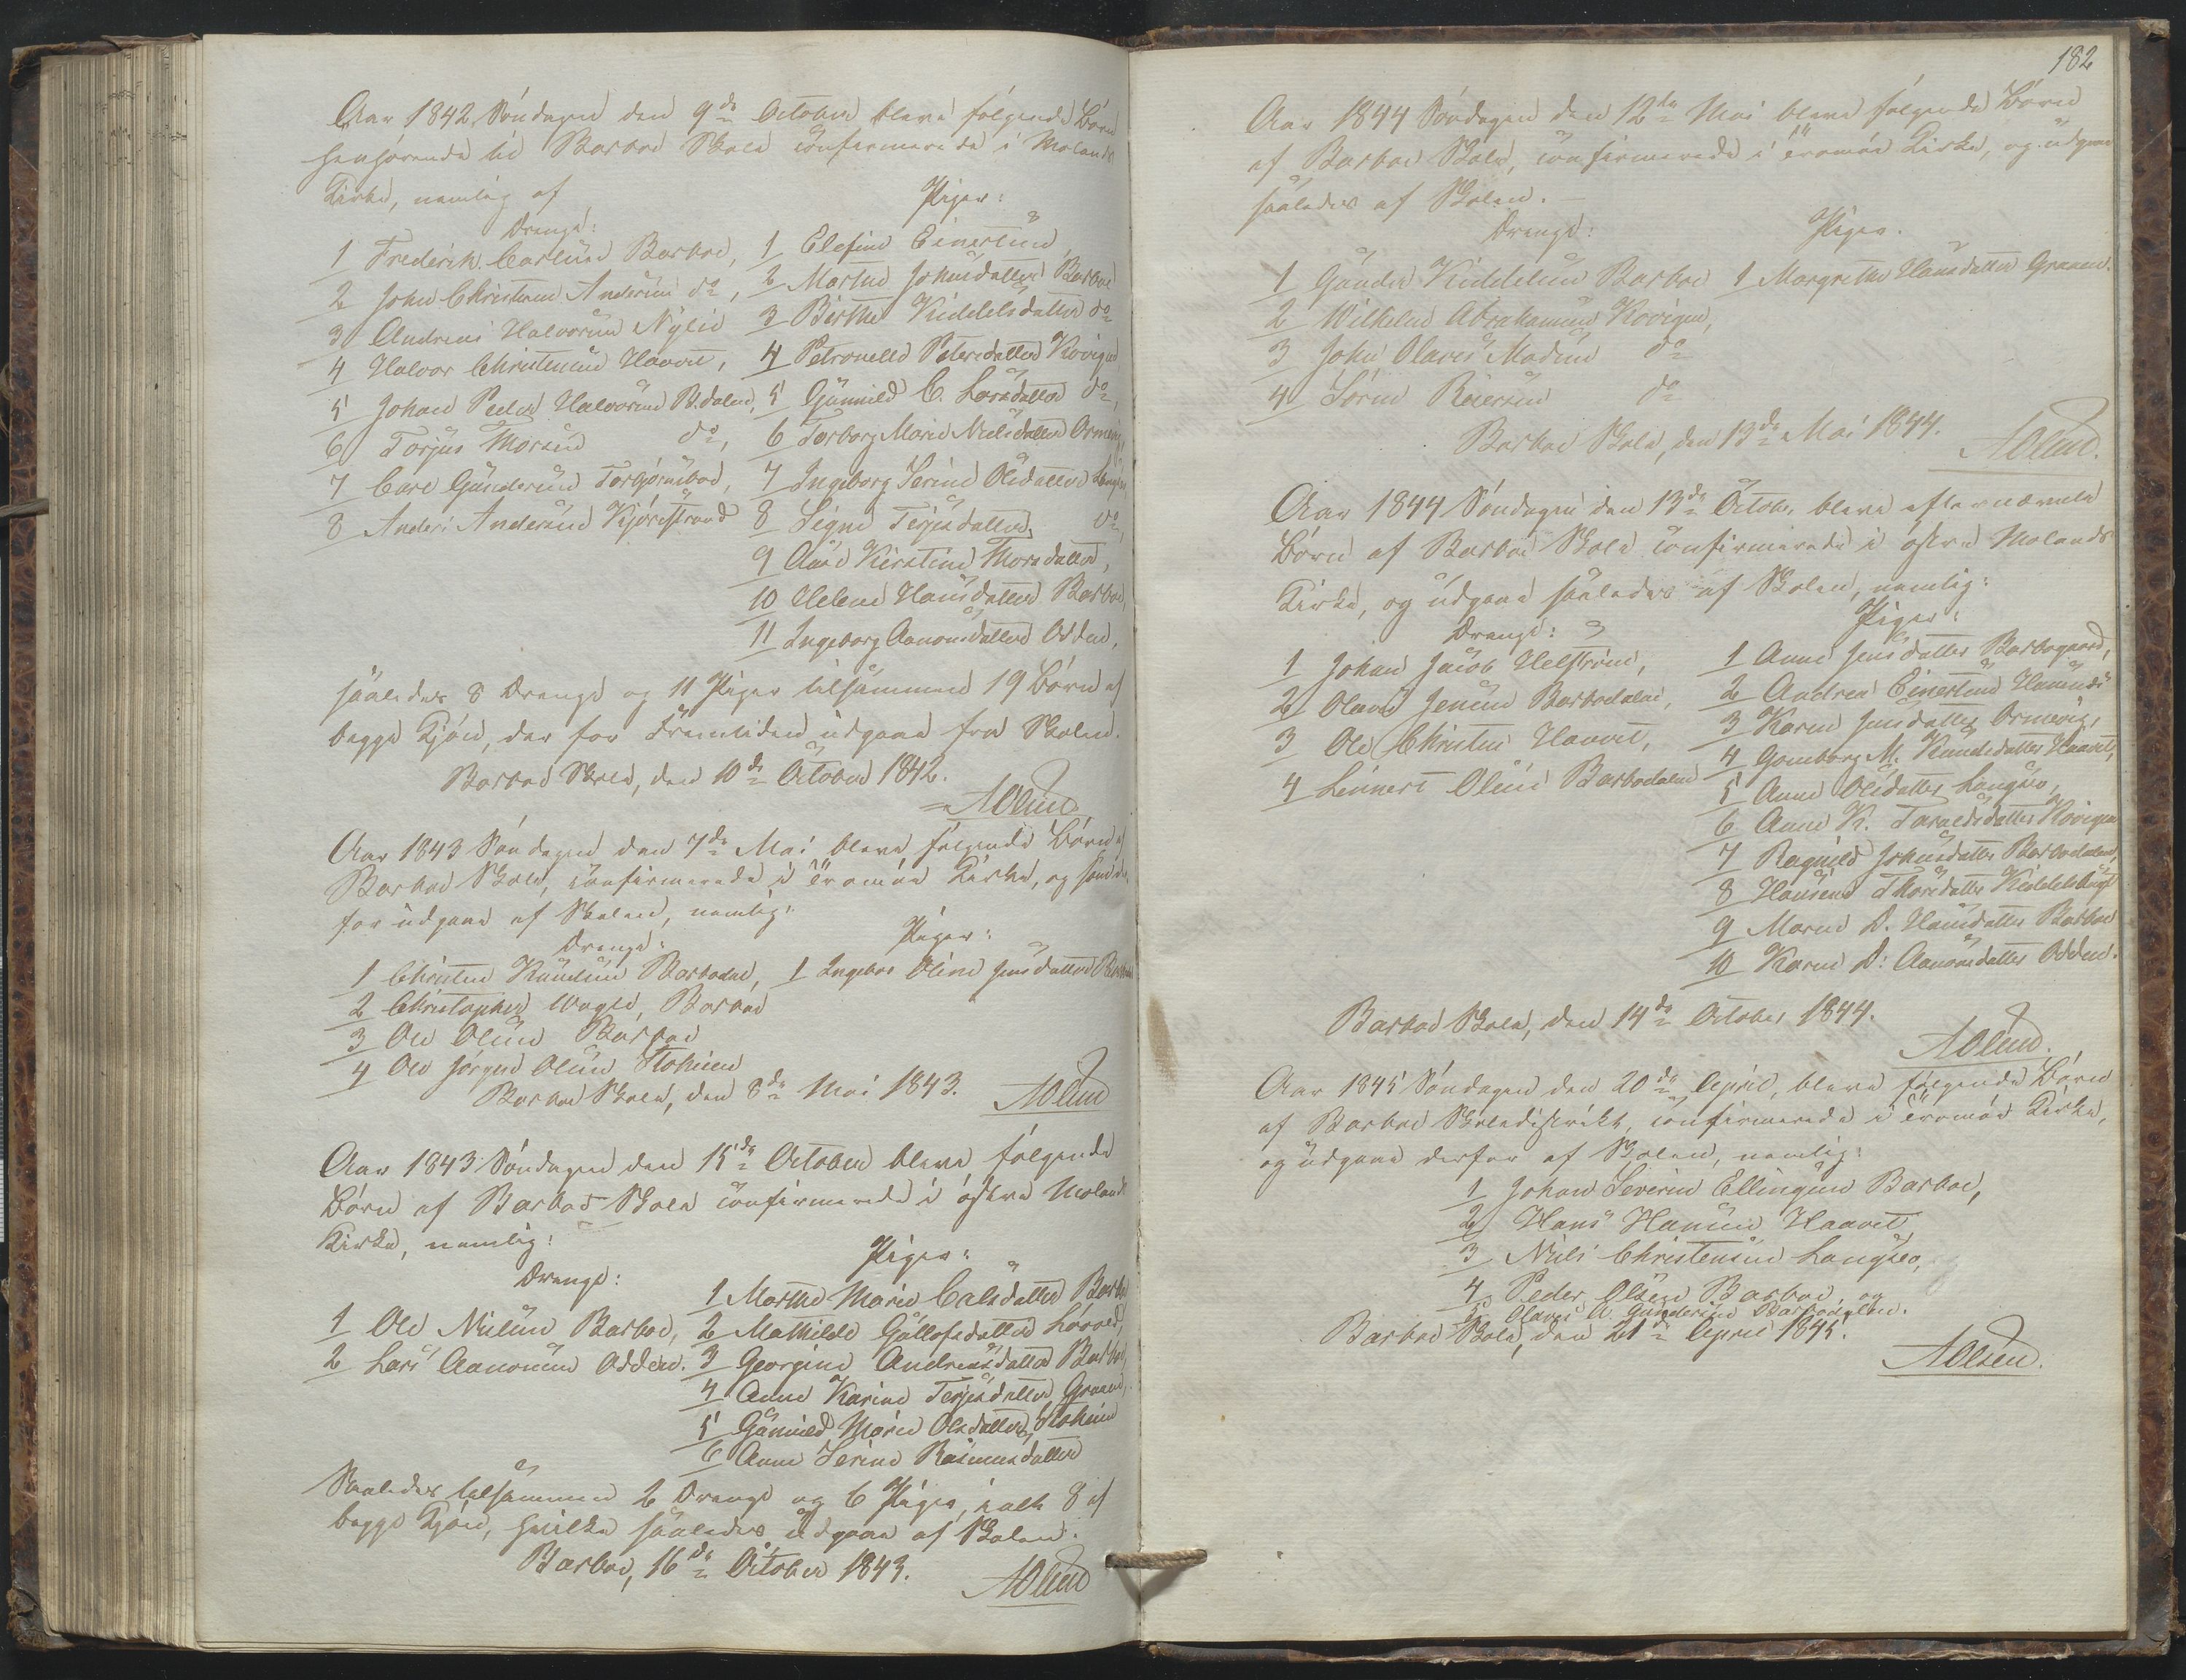 Aar 1842 Söndagen den 9de October bleve følgende Børn
henhørende til Barboe Skole confirmerede i Molands
Kirke, nemlig af
Drenge:
1 Frederik Carlsen Barboe,
2 John Christian Andersen do,
3 Andreas Halvorsen Nylie
4 Halvor Christensen Haavet,
5 Johan Peder Halvorsen B.dalen,
6 Torjus Thorsen do,
7 Carl Gundersen Torbjørnsboe,
8 Anders Andersen Kjørestrand
Piger:
1 Elefine Einersen
2 Marthe Johnsdatter Barboe
3 Birthe Kiddelsdatter do
4 Petronelle Petersdatter Kovigen
5 Gunnild C. Larsdatter do,
6 Torborg Marie Nielsdatter Ormevig
7 Ingeborg Serine Olsdatter Langsæ
8 Signe Terjesdatter do,
9 Aase Kirstine Thorsdatter,
10 Helene Hansdatter Barboe,
11 Ingeborg Aanonsdatter Odden,
saaledes 8 Drenge og 11 Piger tilsammen 19 Børn af
begge Kjøn, der for Fremtiden udgaae fra Skolen.
Barboe Skole, den 10de October 1842.
AOlsen
Aar 1843 Søndagen den 7de Mai bleve følgende Børn af
Barboe Skole, confirmerede i Tromøe Kirke, og
for udgaae af Skolen, nemlig:
Drenge:
1 Christen Knudsen Barbodal,
2 Christopher Wagle, Barboe
3 Ole Olsen Barboe
4 Ole Jørgen Olsen Stoheien
Piger:
1 Ingebor Oline Jensdatter
Barboe Skole, den 8de Mai 1843.
AOlsen
Aar 1843 Søndagen den 15de October bleve følgende
Børn af Barboe Skole confirmerede i østre Molands
Kirke, nemlig:
Drenge:
1 Ole Nielsen Barboe,
2 Lars Aanonsen Odden.
Piger:
1 Marthe Marie Carlsdatter Barboe
2 Mathilde Gullofsdatter
3 Georgine Andreasdatter Barboe,
4 Anne Karine Terjesdatter Graaen,
5 Gunnild Marie Olsdatter, Stoheien
6 Anne Serine Rasmusdatter
Saaledes tilsammen 2 Drenge og 6 Piger, i alt 8 af
begge Kjøn, hvilke saaledes udgaae af Skolen.
Barboe, 16de October 1843.
AOlsen
182
Aar 1844 Søndagen den 12te Mai bleve følgende Børn
af Barboe Skole, confirmerede i Tromøe Kirke, og udgaae
saaledes af Skolen.
Drenge:
1 Gunder Kiddelsen Barboe
2 Wilhelm Abrahamsen Kovigen,
3 John Olaves Madsen do
4 Sørin Reiersen do
Piger.
1 Margrethe Hansdatter Graaen.
Barboe Skole, den 13de Mai 1844.
AOlsen.
Aar 1844 Søndagen den 13de October bleve efternævnte
Børn af Barboe Skole confirmerede i østre Molands
Kirke, og udgaae saaledes af Skolen, nemlig:
Drenge:
1 Johan Jacob Helstrøm,
2 Olaves Jensen Barbodalen,
3 Ole Christens Haavet,
4 Linnert Olsen Barbodalen
Piger:
1 Anne Jensdatter Barbogaard,
2 Andrea Einersen
3 Karen Jensdatter Ormevig,
4 Gomborg M. Knudsdatter Haavet,
5 Anne Olsdatter Langsæ,
6 Anne K. Taraldsdatter Kovigen
7 Ragnild Johnsdatter Barbodalen,
8 Hansine Thorsdatter
9 Maren D. Hansdatter Barboe
10 Karen D: Aanonsdatter Odden.
Barboe Skole, den 14de October 1844.
AOlsen.
Aar 1845 Søndagen den 20de April, bleve følgende Børn
af Barboe Skoledistrikt, confirmerede i Tromøe Kirke,
og udgaae derfor af Skolen, nemlig:
1 Johan Severin Ellingsen Barboe,
2 Hans Hansen Haavet
3 Niels Christensen Langsæ,
4 Peder Olsen Barboe, og
5 Olaves A. Gundersen Barbodalen.
Barboe Skole, den 21de April 1845.
AOlsen.